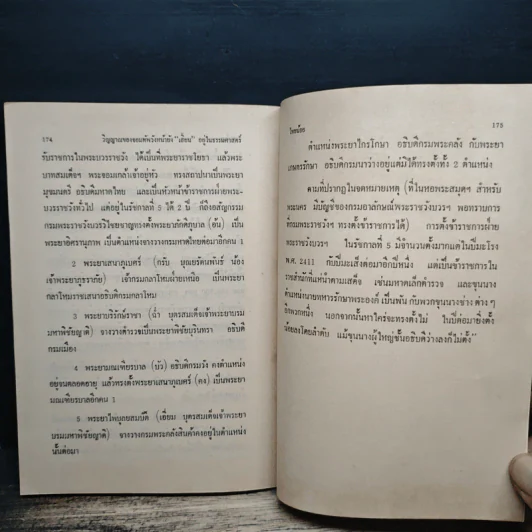 174 วิญญาณของจอมทัพวังหน้ายัง "เฮี้ยน" อยู่ในธรรมศาสตร์
รับราชการในพระบวรราชวัง ได้เป็นที่พระยาราชโยธา แล้วพระ
บาทสมเด็จฯ พระจอมเกล้าเจ้าอยู่หัว ทรงสถาปนาเป็นพระยา
มุขมนตรี อธิบดีมหาดไทย และเป็นหัวหน้าข้าราชการฝ่ายพระ-
บวรราชวังทั่วไป แต่อยู่ในรัชกาลที่ 5 ได้ 2 ปี ก็ถึงอสัญกรรม
กรมพระราชวังบวรวิไชยชาญทรงตั้งพระยาภักดีภูบาล (อ้น) เป็น
พระยาอิศรานุภาพ เป็นตำแหน่งจางวางกรมมหาดไทยต่อมาอีกคน 1
2 พระยาเสนาภูเบศร์ (กรับ บุณยรัตพันธ์ น้อง
เจ้าพระยาภูธราภัย) เจ้ากรมกลาโหมฝ่ายเหนือ เป็นพระยา
กลาโหมราชเสนาอธิบดีกรมกลาโหม
3 พระยาบริรักษ์ราชา (ฉ่ำ บุตรสมเด็จเจ้าพระยา
บรมมหาพิชัยญาติ) จางวางตำรวจเป็นพระยาพิชัยบุรินทรา อธิบดี
กรมเมือง
4 พระยามณเฑียรบาล (บัว) อธิบดีกรมวัง คงตำแหน่ง
อยู่จนตลอดอายุ แล้วทรงตั้งพระยาเสนาภูเบศร์ (คง) เป็นพระยา
มณเฑียรบาลอีกคน 1
5 พระยาไพบูลยสมบัติ (เอี่ยม บุตรสมเด็จเจ้าพระยา
บรมมหาพิชัยญาติ) จางวางกรมพระคลังสินค้าคงอยู่ในตำแหน่ง
นั้นต่อมา
ไทยน้อย 175
ตำแหน่งพระยาไกรโกษา อธิบดีกรมพระคลัง กับพระยา
เกษตรรักษา อธิบดีกรมนาว่างอยู่แต่มิได้ทรงตั้งทั้ง 2 ตำแหน่ง
ตามที่ปรากฏในจดหมายเหตุ (ที่ในหอพระสมุดฯ สำหรับ
พระนคร มีบัญชีของกรมอาลักษณ์พระราชวังบวรฯ พอทราบการ
ที่กรมพระราชวังฯ ทรงตั้งข้าราชการได้) การตั้งข้าราชการฝ่าย
พระราชวังบวรฯ ในรัชกาลที่ 5 มีจำนวนตั้งมากแต่ในปีมะโรง
พ.ศ. 2411 กับปีมะเส็งต่อมาอีกปีหนึ่ง แต่เป็นข้าราชการใน
ราชสำนักที่แห่นำตามเสด็จ เช่นมหาดเล็กตำรวจ และขุนนาง
ตำแหน่งนายทหารรักษาพระองค์ เป็นพื้น กับพวกขุนนางช่าง ต่าง ๆ
อีกพวกหนึ่ง นอกจากนั้นหาใคร่จะทรงตั้งไม่ ในปีต่อมายิ่งตั้ง
น้อยลงโดยลำดับ แม้ขุนนางผู้ใหญ่ชั้นอธิบดีว่างลงก็ไม่ตั้ง"